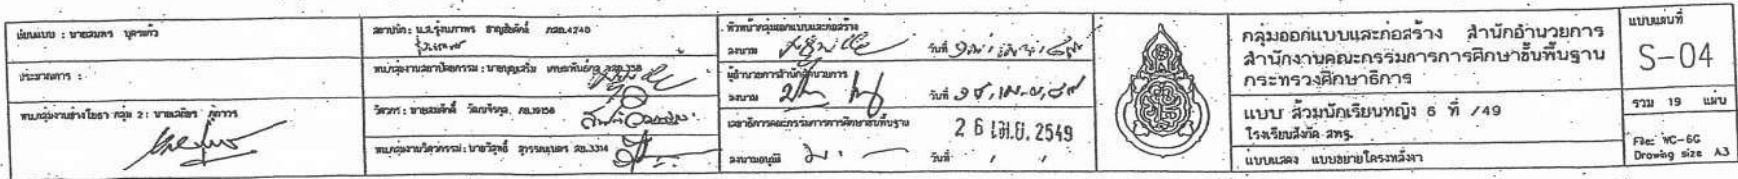 เขียนแบบ : นายสมพร บุตรแก้ว
ประมาณการ :
หน.กลุ่มงานช่างโยธา กลุ่ม 2 :
สถาปนิก : น.ส.รุ้งนภาพร ชาญชัยศักดิ์ ภสถ.4240
หน.กลุ่มงานสถาปัตยกรรม : นายบุญเสริม
วิศวกร : นายสมศักดิ์
หน.กลุ่มงานวิศวกรรม : นายวิสุทธิ์ สุวรรณเนตร สย.3314
หัวหน้ากลุ่มออกแบบและก่อสร้าง
ลงนาม วันที่
ผู้อำนวยการสำนักอำนวยการ
ลงนาม วันที่
เลขาธิการคณะกรรมการการศึกษาขั้นพื้นฐาน
26 เม.ย. 2549
ลงนามอนุมัติ วันที่
กลุ่มออกแบบและก่อสร้าง สำนักอำนวยการ
สำนักงานคณะกรรมการการศึกษาขั้นพื้นฐาน
กระทรวงศึกษาธิการ
แบบ ส้วมนักเรียนหญิง 6 ที่ /49
โรงเรียนสังกัด สพฐ.
แบบแสดง แบบขยายโครงหลังคา
แบบแผ่นที่
S-04
รวม 19 แผ่น
File: WC-6G
Drawing size A3